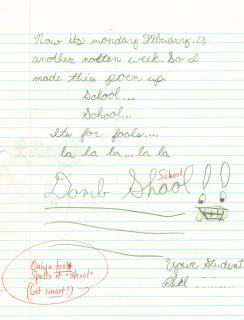 Now its monday February.28
another rotten week. So I
made this poem up.
School...
School...
Its for fools....
la la la... la la
Domb Shool !!
School
Your Student
Phil
Only a fool
Spells it "shool"
(Get smart!)